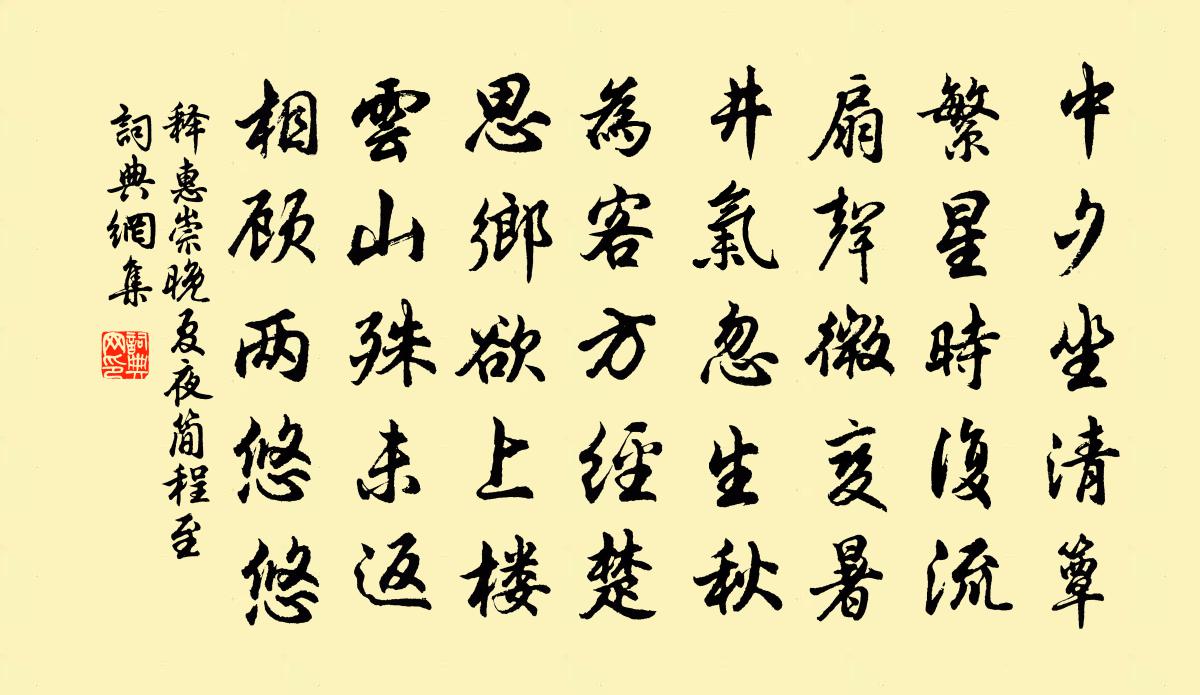 中夕坐清簟
繁星時復流
扇聲微變暑
井氣忽生秋
為客方經楚
思鄉欲上楼
雲山殊未返
相顾两悠悠
释惠崇晚夏夜简程至
詞典網集
詞典
网印